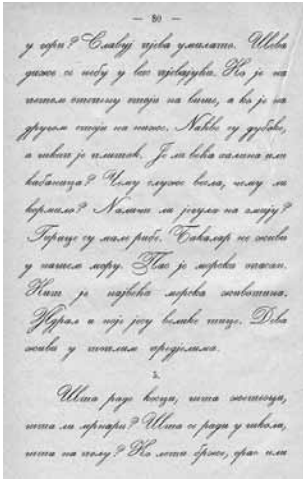 — 80 —
у гори? Славуј пјева умилато. Шева
диже се небу у вис пјевајући. Ко је на
дугом стоји на ниже. Наћве су дубоке,
а тањир је плитак. Је ли већа халина или
кабаница? Чему служе весла, чему ли
кормило? Наличи ли јегуља на змију?
Гирице су мале рибе. Бакалар не живи
у нашем мору. Пас је морски опасан.
Кит је највећа морска животиња.
Ждрал и ноје јесу велике тице. Дева
живи у топлим предјелима.
5.
Шта раде косци, шта жетеоци,
шта ли мрнари? Шта се ради у школи,
шта на пољу? Ко лети брже, орао или